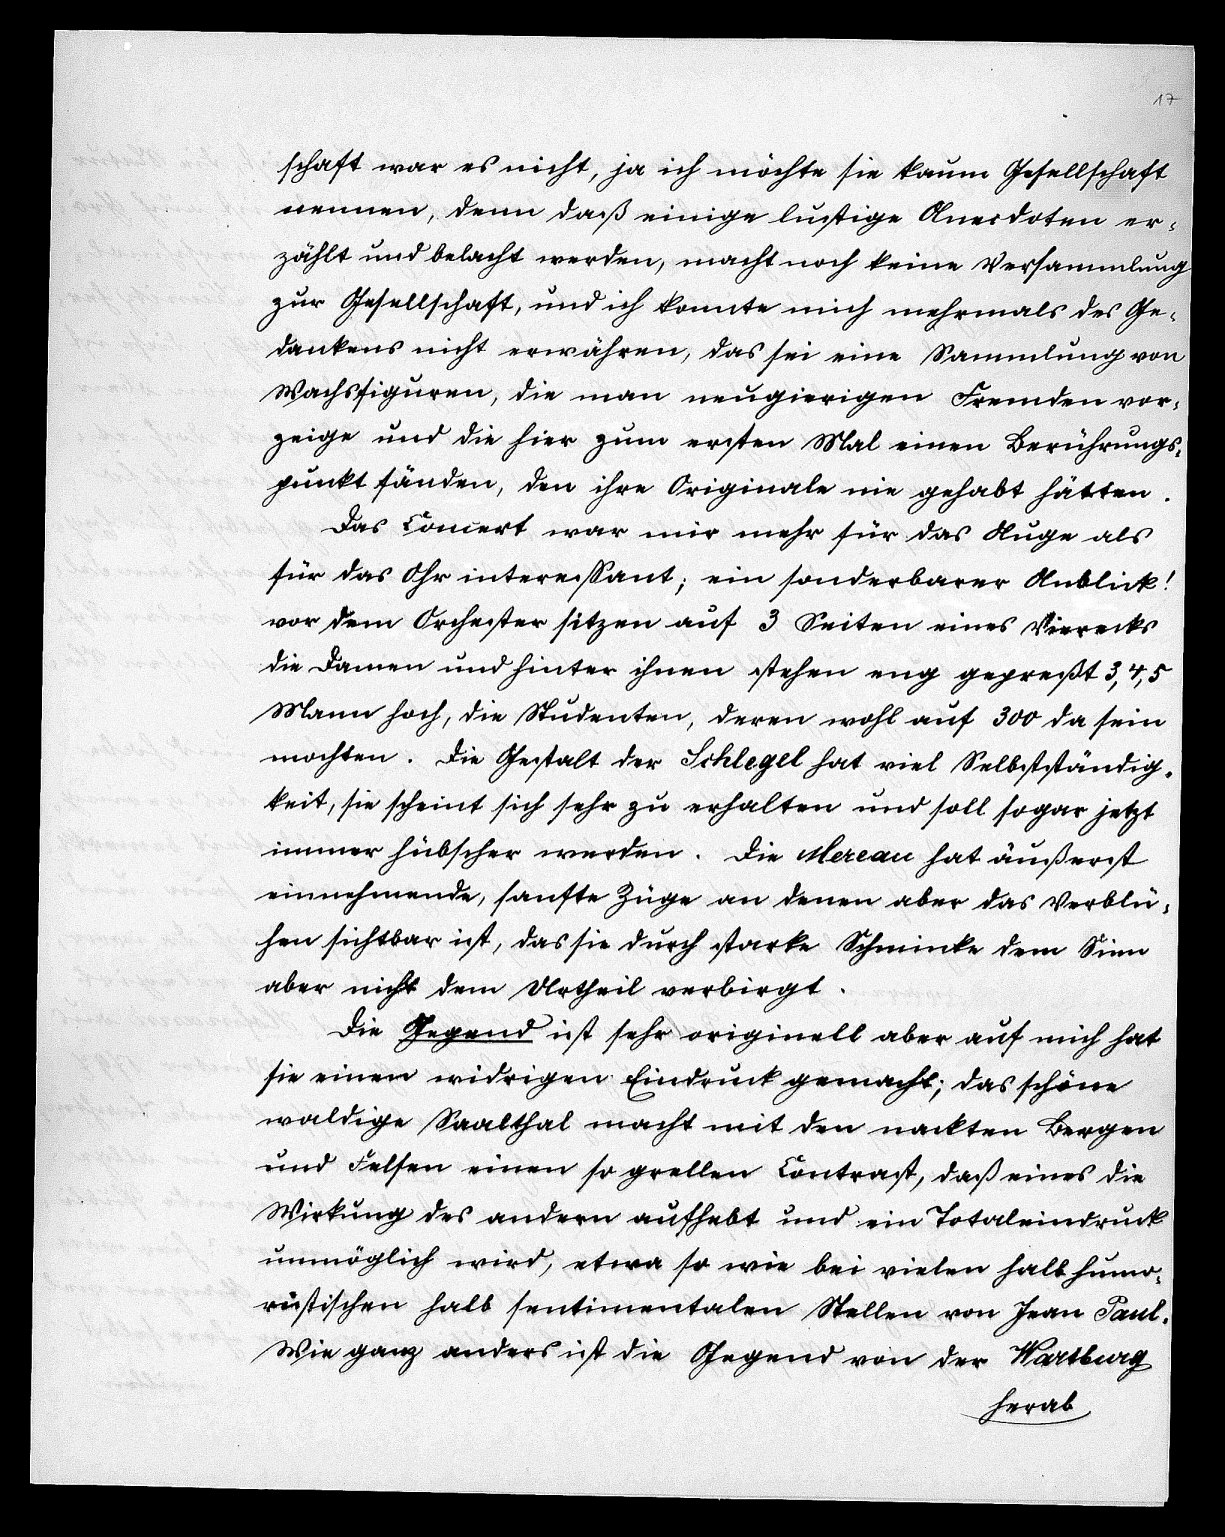 17
schaft war es nicht, ja ich möchte sie kaum Gesellschaft
nennen, denn daß einige lustige Anecdoten er-
zählt und belacht werden, macht noch keine Versammlung
zur Gesellschaft, und ich konnte mich mehrmals des Ge-
dankens nicht erwähren, das sei eine Sammlung von
Wachsfiguren, die man neugierigen Fremden vor-
zeige und die hier zum ersten Mal einen Berührungs-
punkt fänden, den ihre Originale nie gehabt hätten.
Das Concert war mir mehr für das Auge als
für das Ohr interessant; ein sonderbarer Anblick!
vor dem Orchester sitzen auf 3 Seiten eines Vierecks
die Damen und hinter ihnen stehen eng gepreßt 3, 4, 5
Mann hoch, die Studenten, deren wohl auf 300 da sein
mochten. Die Gestalt der Schlegel hat viel Selbstständig-
keit, sie scheint sich sehr zu erhalten und soll sogar jetzt
immer hübscher werden. Die Mereau hat äußerst
einnehmende, sanfte Züge an denen aber das Verblü-
hen sichtbar ist, das sie durch starke Schminke dem Sinn
aber nicht dem Urtheil verbirgt.
Die Gegend ist sehr originell aber auf mich hat
sie einen widrigen Eindruck gemacht; das schöne
waldige Saalthal macht mit den nackten Bergen
und Felsen einen so grellen Contrast, daß eines die
Wirkung des andern aufhebt und ein Totaleindruck
unmöglich wird, etwa so wie bei vielen halb humo-
ristischen halb sentimentalen Stellen von Jean Paul.
Wie ganz anders ist die Gegend von der Wartburg
herab